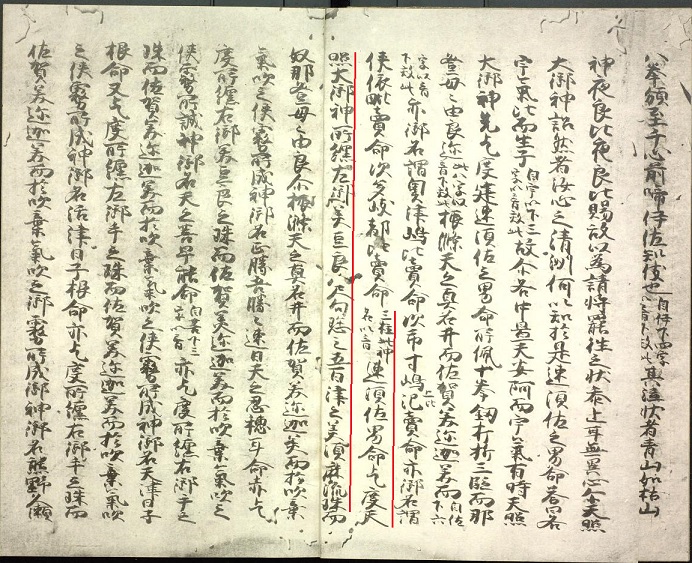 八拳鬚至于心前啼伊佐知伎也自伊下四字以音下效此其泣状者青山如枯山
神夜良比夜良比賜故以為請將罷往之状参上耳無異心尒天照
大御神詔然者汝心之清明何以知於是速須佐之男命荅白各
宇氣比而生子自宇以下三字以音下效此故尒各中置天安河而宇氣布時天照
大御神先乞度建速須佐之男命所佩十拳釼打折三段而那
登母々由良迩此八字以音下效此振滌天之真名井而佐賀美迩迦美而自佐下六
字以音下效此亦御名謂奥津嶋比賣命次市寸嶋上比賣命亦御名謂
狭依毗賣命次多岐都比賣命三柱此神名以音速須佐男命乞度天
照大御神所纒左御美豆良八尺勾璁之五百津之美須麻流珠而
奴那登母々由良尒振滌天之真名井而佐賀美迩迦美而於吹棄
氣吹之狭霧所成神御名正勝吾勝々速日天之忍穂耳命亦乞
度所纒右御美豆良之珠而佐賀美迩迦美而於吹棄氣吹之
狭霧所成神御名天之菩卑能命自菩下三字以音亦乞度所纒右御手之
珠而佐賀美迩迦美而於吹棄氣吹之狭霧所成神御名天津日子
根命又乞度所纒左御手之珠而佐賀美迩迦美而於吹棄氣吹
之狭霧所成神御名活津日子根命亦乞度所纒右御手之珠而
佐賀美迩迦美而於吹棄氣吹之御霧所成御神御名熊野久湏